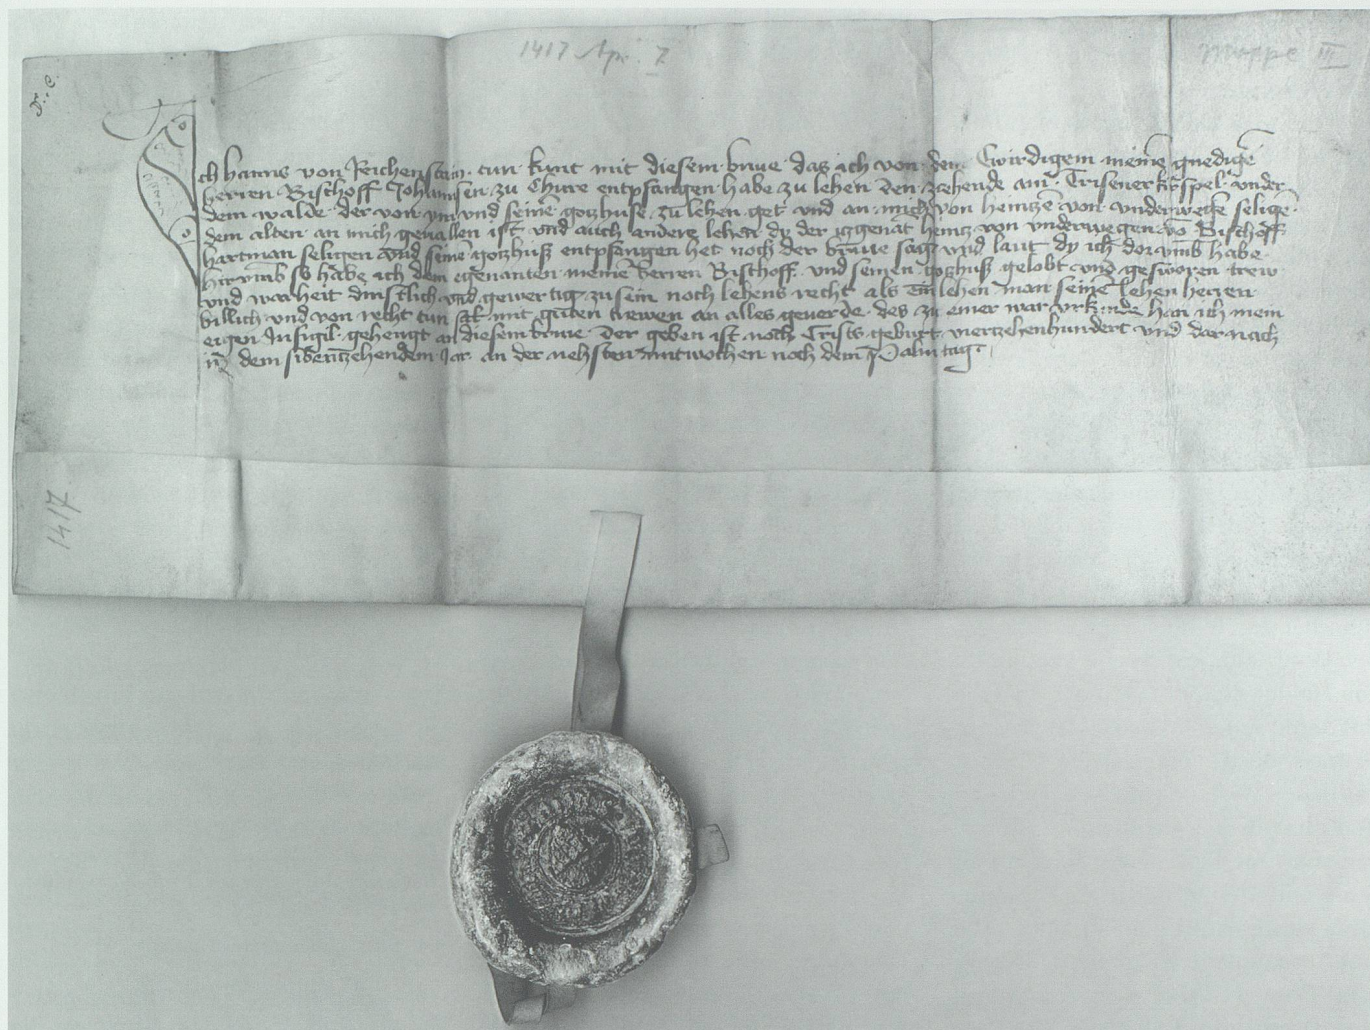 1417 Apr. 7
Mappe III
Ich hanns von Reichenstain tun kunt mit diesem briue das ich von dem Erwirdigem meinē gnedigē
herren Bischoff Johannsen zu Chure entpfangen habe zu lehen den zehende am Trisener kirspel vnder
dem walde der von ym vnd seinē gotzhuse zu lehen get vnd an mich von heintzē von vnderwegē seligē
dem alten an mich geuallen ist vnd auch andere lehen dy der itzgenāt heintz von vnderwegen vō Bischoff
hartman seligen vnd seinē gotzhuß entpfangen het noch der briue sag vnd laut dy ich dor vmb habe
har vmb so habe ich dem egenanten meinē herren Bischoff vnd seinen gotzhuß gelobt vnd gesworen trew
vnd warheit dinstlich vnd gewertig zu sein noch lehens recht als ein lehen man seinē lehen herren
billich vnd von recht tun sol mit guten trewen an alles geuerde des zu einer war vrkunde han ich mein
eigen Insigil gehengt an diesem briue Der geben ist noch Crists geburt vierzehenhundert vnd dar nach
in dem sibentzehendem Jar an der nehsten mitwochen noch dem Palmtag
1417